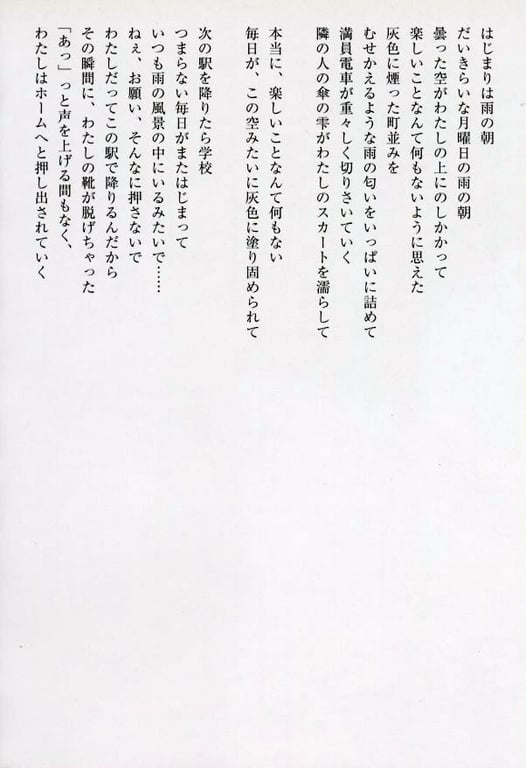 はじまりは雨の朝
だいきらいな月曜日の雨の朝
曇った空がわたしの上にのしかかって
楽しいことなんて何もないように思えた
灰色に煙った町並みを
むせかえるような雨の匂いをいっぱいに詰めて
満員電車が重々しく切りさいていく
隣の人の傘の雫がわたしのスカートを濡らして
本当に、楽しいことなんて何もない
毎日が、この空みたいに灰色に塗り固められて
次の駅を降りたら学校
つまらない毎日がまたはじまって
いつも雨の風景の中にいるみたいで……
ねぇ、お願い、そんなに押さないで
わたしだってこの駅で降りるんだから
その瞬間に、わたしの靴が脱げちゃった
「あっ」っと声を上げる間もなく、
わたしはホームへと押し出されていく